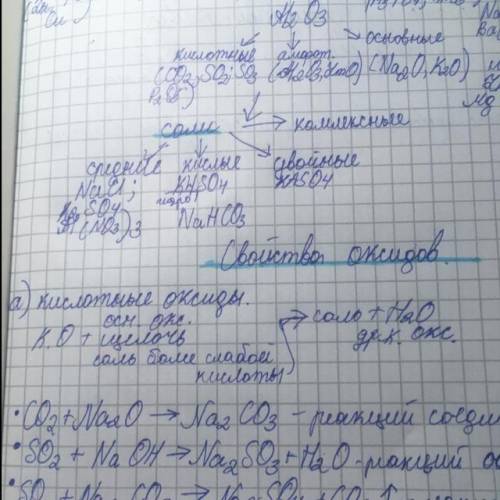 Al2O3
кислотные амфот. основные
(CO2, SO2, SO3 (Al2O3, ZnO) (Na2O, K2O)
P2O5)
Mg
соли → комлексные
средние кислые двойные
NaCl; KHSO4 KAlSO4
K2SO4 гидро
Al(NO3)3 NaHCO3
Свойства оксидов.
а) кислотные оксиды.
осн. окс. → соль + H2O
К.О + щелочь др.к. окс.
соль более слабой
кислоты
• CO2 + Na2O → Na2CO3 - реакций соеди
• SO2 + NaOH → Na2SO3 + H2O - реакций